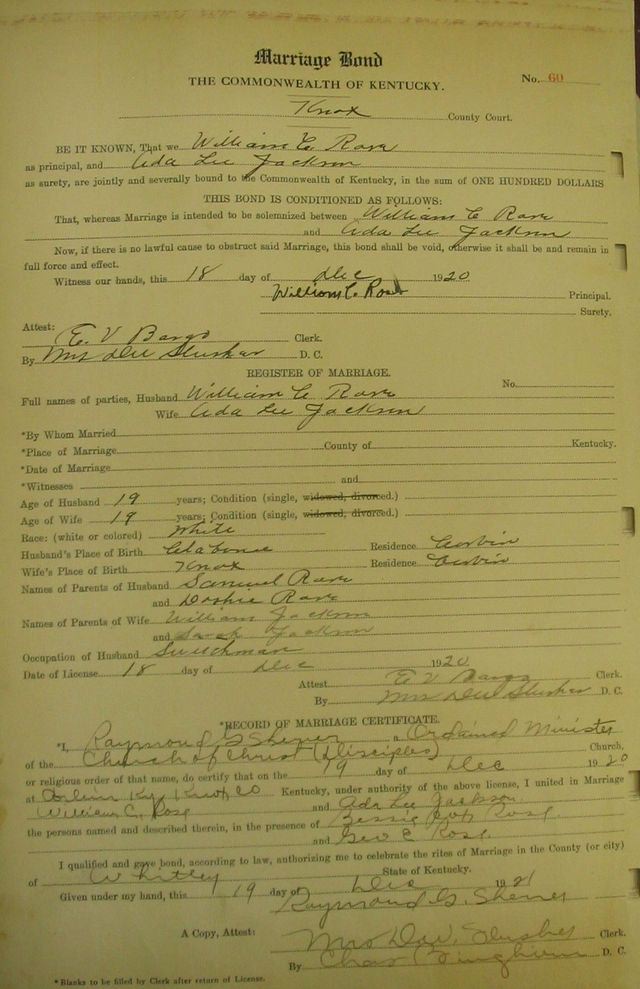 Marriage Bond
THE COMMONWEALTH OF KENTUCKY.
No. 60
Knox County Court.
BE IT KNOWN, That we William C Rose
as principal, and Ada Lee Jackson
as surety, are jointly and severally bound to the Commonwealth of Kentucky, in the sum of ONE HUNDRED DOLLARS
THIS BOND IS CONDITIONED AS FOLLOWS:
That, whereas Marriage is intended to be solemnized between William C Rose
and Ada Lee Jackson
Now, if there is no lawful cause to obstruct said Marriage, this bond shall be void, otherwise it shall be and remain in
full force and effect.
Witness our hands, this 18 day of Dec 1920
William C. Rose Principal.
Surety.
Attest:
E. V Bargo Clerk.
By Mrs Dee Slusher D. C.
REGISTER OF MARRIAGE.
No.
Full names of parties, Husband William C Rose
Wife Ada Lee Jackson
*By Whom Married
*Place of Marriage County of Kentucky.
*Date of Marriage
*Witnesses and
Age of Husband 19 years; Condition (single, widowed, divorced.)
Age of Wife 19 years; Condition (single, widowed, divorced.)
Race: (white or colored) White
Husband's Place of Birth Residence Corbin
Wife's Place of Birth Knox Residence Corbin
Names of Parents of Husband Samuel Rose
and Doshie Rose
Names of Parents of Wife William Jackson
and Sarah Jackson
Occupation of Husband Switchman
Date of License 18 day of Dec 1920
Attest E V Bargo Clerk.
By Mrs Dee Slusher D. C.
*RECORD OF MARRIAGE CERTIFICATE.
*I, Raymond G Sherrer a Ordained Minister
of the Church of Christ (Disciples) Church,
or religious order of that name, do certify that on the 19 day of Dec 1920
at Corbin Ky. Knox Co Kentucky, under authority of the above license, I united in Marriage
William C. Rose and Ada Lee Jackson
the persons named and described therein, in the presence of Bessie Rose
and Geo C Rose.
I qualified and gave bond, according to law, authorizing me to celebrate the rites of Marriage in the County (or city)
of Whitley State of Kentucky.
Given under my hand, this 19 day of Dec 1921
Raymond G. Sherrer
A Copy, Attest: Mrs D.W. Slusher Clerk.
By Chas Bingham D. C.
*Blanks to be filled by Clerk after return of License.